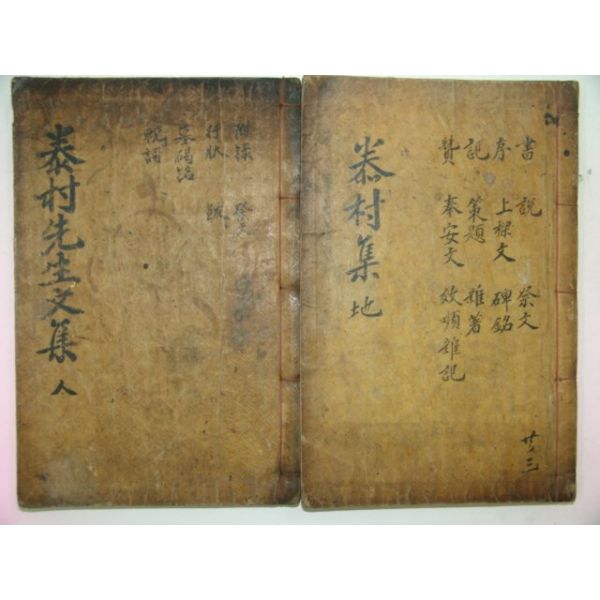 書 說 祭文
序 上樑文 碑銘
記 策題 雜著
贊 奉安文 效頻雜記
泰村集 地
共三
附錄 祭文
行狀 跋
墓碣銘
泰村先生文集 人